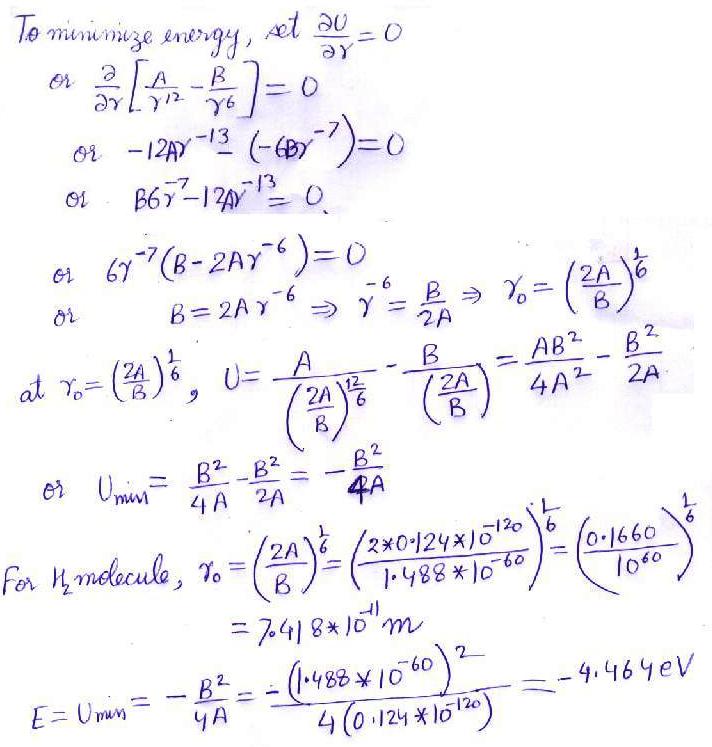 To minimize energy, set ∂U/∂r = 0
or ∂/∂r [A/r^12 - B/r^6] = 0
or -12Ar^-13 - (-6Br^-7) = 0
or B6r^-7 - 12Ar^-13 = 0.
or 6r^-7 (B - 2Ar^-6) = 0
or B = 2Ar^-6 ⇒ r^-6 = B/2A ⇒ r₀ = (2A/B)^1/6
at r₀ = (2A/B)^1/6, U = A/(2A/B)^12/6 - B/(2A/B) = AB²/4A² - B²/2A
or Umin = B²/4A - B²/2A = - B²/4A
For H₂ molecule, r₀ = (2A/B)^1/6 = (2*0.124*10^-120/1.488*10^-60)^1/6 = (0.1660/10^60)^1/6
= 7.418*10^-11 m
E = Umin = - B²/4A = -(1.488*10^-60)²/4(0.124*10^-120) = -4.464eV